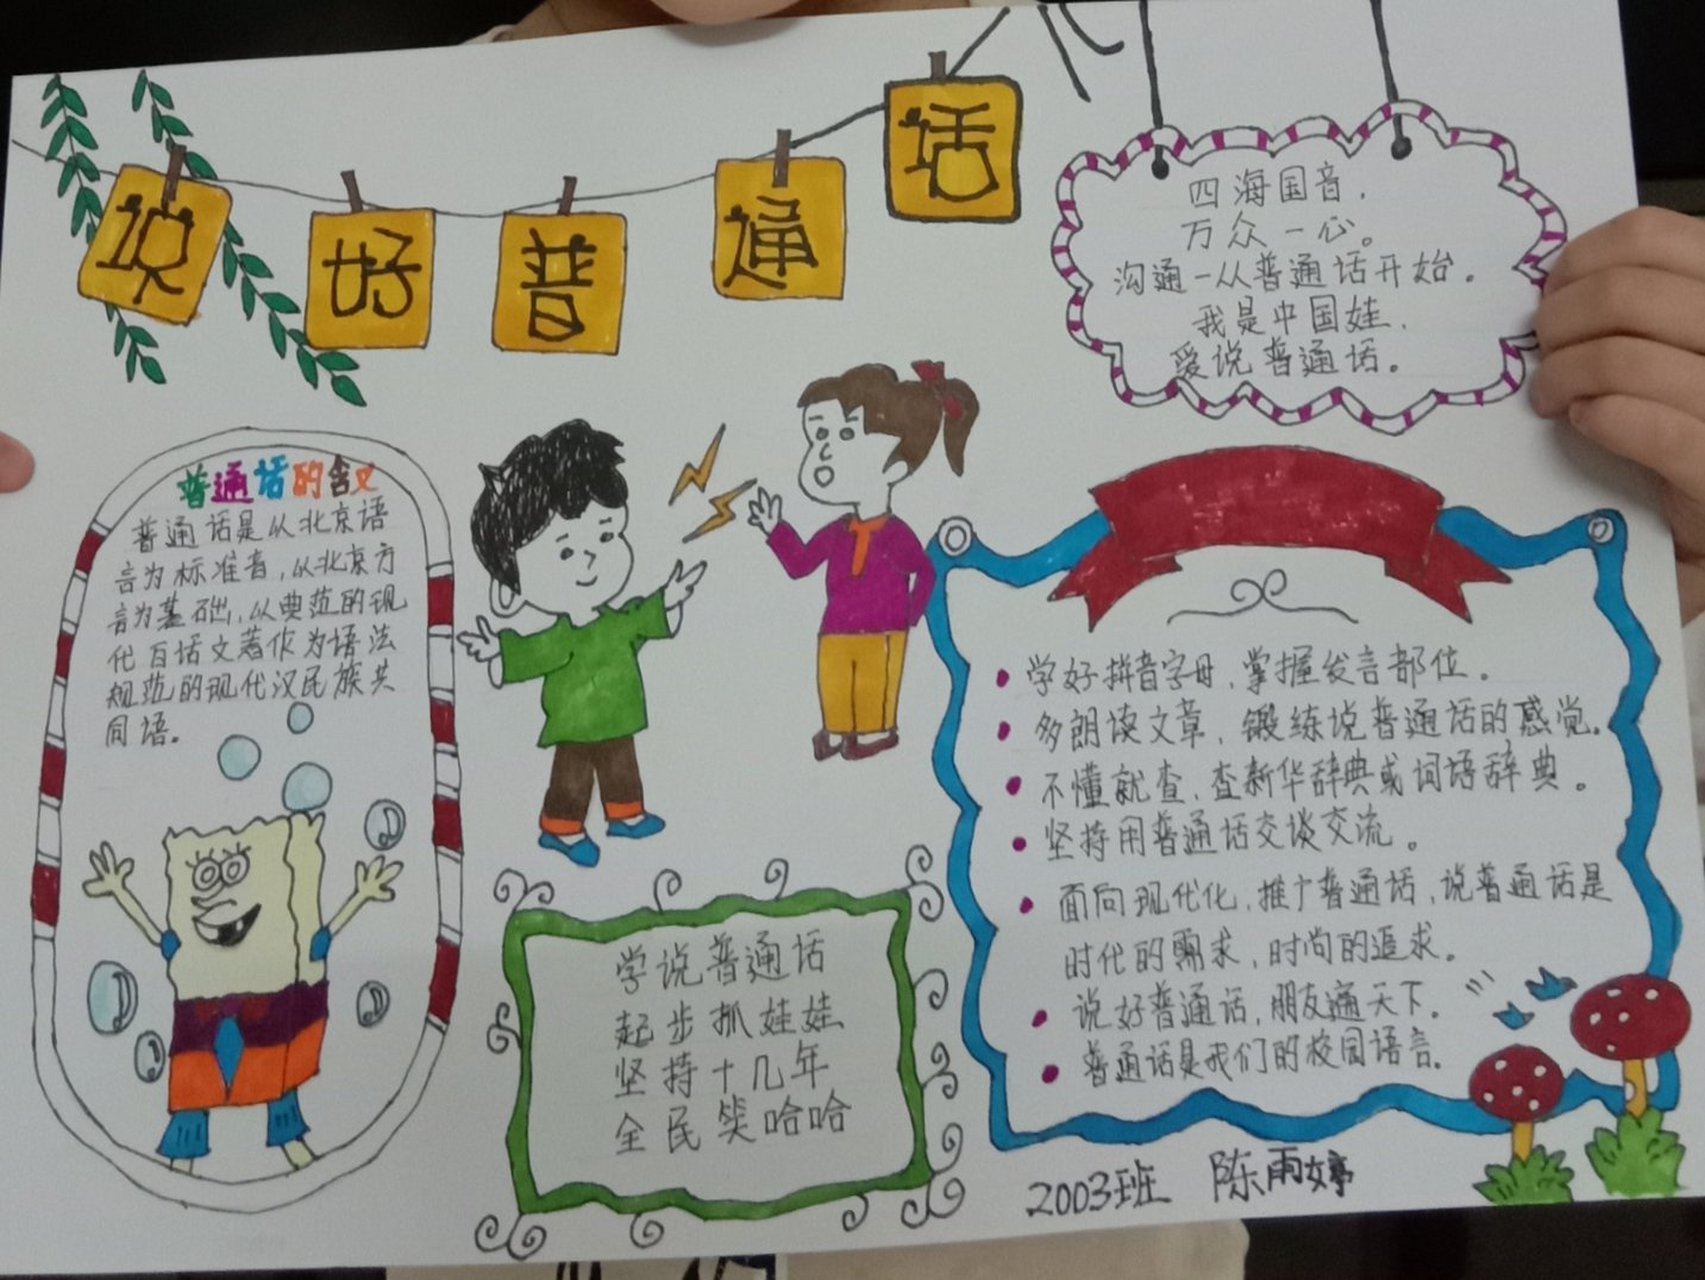 说好普通话
四海国音，
万众一心。
沟通－从普通话开始。
我是中国娃，
爱说普通话。
普通话的含义
普通话是从北京语
言为标准音，从北京方
言为基础，从典范的现
代百话文著作为语法
规范的现代汉民族共
同语。
学说普通话
起步抓娃娃
坚持十几年
全民笑哈哈
学好拼音字母，掌握发言部位。
多朗读文章，锻练说普通话的感觉。
不懂就查，查新华辞典或词语辞典。
坚持用普通话交谈交流。
面向现代化，推广普通话，说普通话是
时代的需求，时尚的追求。
说好普通话，朋友遍天下。
普通话是我们的校园语言。
2003班 陈雨婷